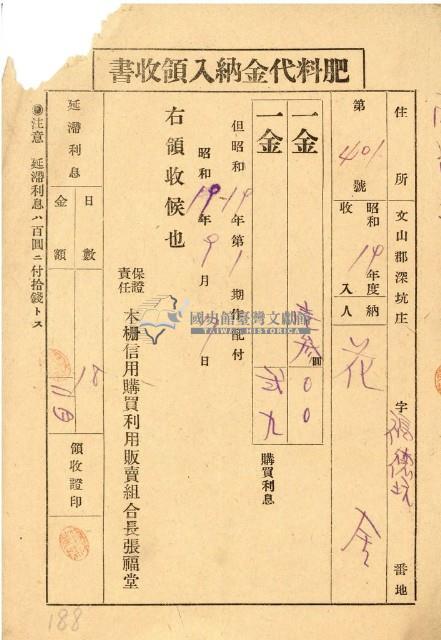 肥料代金納入領收書
住所 文山郡深坑庄 字 番地
第 401 號 昭和 14 年度納
收入人 花
一金 圓 00
一金 弐九 購買利息
但昭和 14 年第 1 期作配付
昭和 14 年 9 月 日
右領收候也
保證責任 木柵信用購買利用販賣組合長張福堂
延滯利息
日數 18
金額
領收證印
注意 延滯利息ハ百圓ニ付拾錢トス
國史館臺灣文獻館
TAIWAN HISTORICA
188